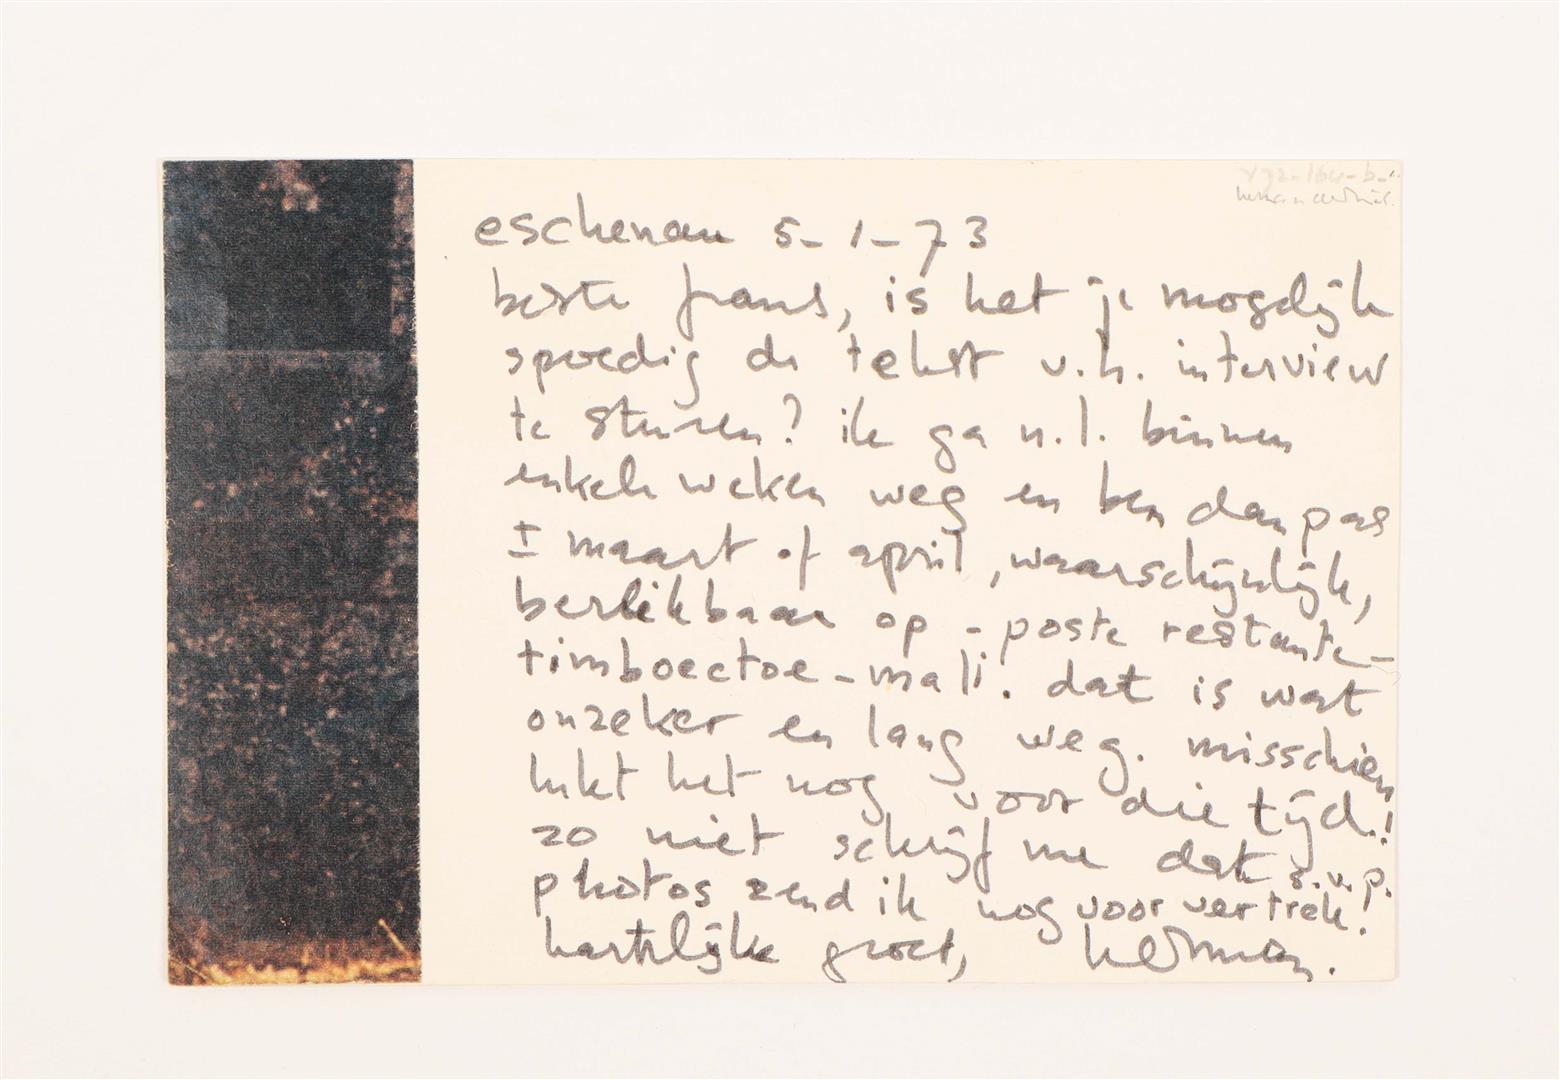 eschenau 5-1-73
beste frans, is het je mogelijk
spoedig de tekst v.h. interview
te sturen? ik ga n.l. binnen
enkele weken weg en ben dan pas
± maart of april, waarschijnlijk,
bereikbaar op - poste restante -
timboectoe - mali. dat is wat
onzeker en lang weg. misschien
lukt het nog voor die tijd!
zo niet schrijf me dat s.v.p.
photos zend ik nog voor vertrek!
hartelijke groet, herman.